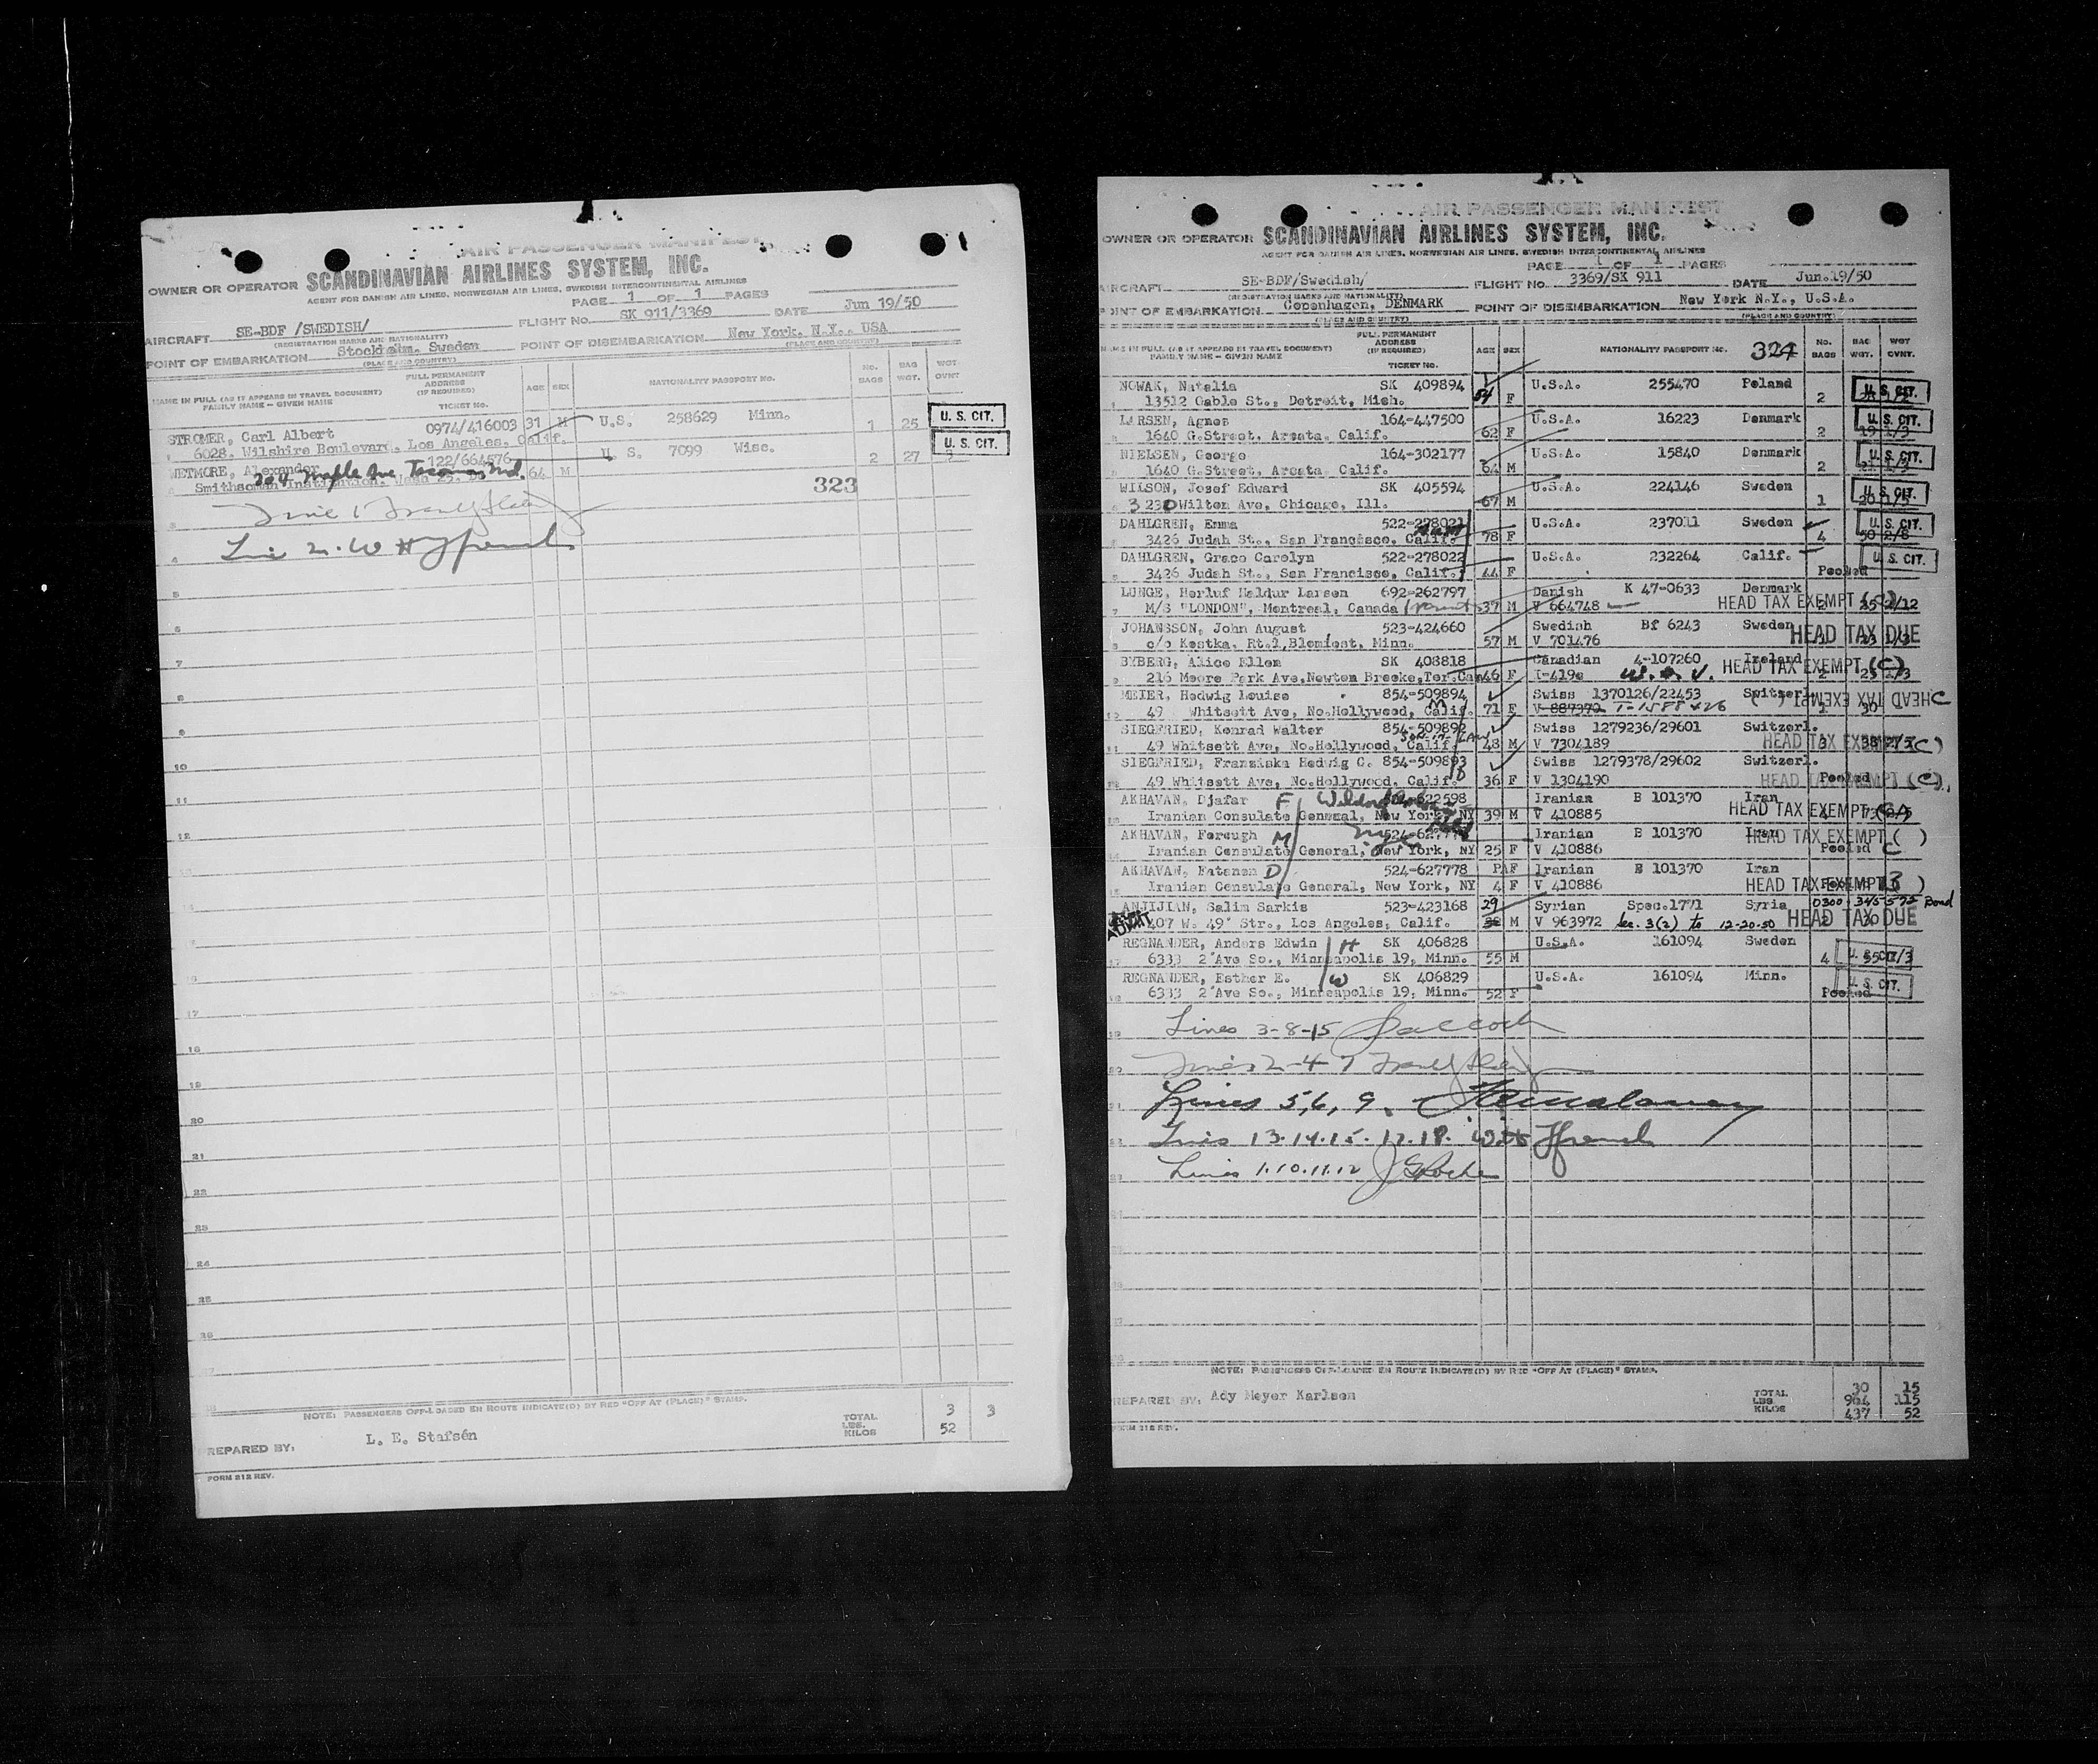 AIR PASSENGER MANIFEST
OWNER OR OPERATOR SCANDINAVIAN AIRLINES SYSTEM, INC.
AGENT FOR DANISH AIR LINES, NORWEGIAN AIR LINES, SWEDISH INTERCONTINENTAL AIRLINES
PAGE 1 OF 1 PAGES
AIRCRAFT SE-BDF /SWEDISH/ FLIGHT NO. SK 911/3369 DATE Jun 19/50
(REGISTRATION MARKS AND NATIONALITY)
POINT OF EMBARKATION Stockholm, Sweden POINT OF DISEMBARKATION New York, N.Y., USA
(PLACE AND COUNTRY) (PLACE AND COUNTRY)
NAME IN FULL (AS IT APPEARS IN TRAVEL DOCUMENT) FAMILY NAME - GIVEN NAME FULL PERMANENT ADDRESS (IF REQUIRED) TICKET NO. AGE SEX NATIONALITY PASSPORT NO. No. BAGS BAG WGT. WGT OVNT
STROMER, Carl Albert 0974/416003 31 M U.S. 258629 Minn. 1 25 U. S. CIT.
6028. Wilshire Boulevard, Los Angeles, Calif.
WETMORE, Alexander 122/664576 64 M U. S. 7099 Wisc. 2 27 3 U. S. CIT.
Smithsonian Institution. Wash 25.
204 Maple Ave Md.
323
Line 1
Line 2. W H
3
4
5
6
7
8
9
10
11
12
13
14
15
16
17
18
19
20
21
22
23
24
25
26
27
28
NOTE: PASSENGERS OFF-LOADED EN ROUTE INDICATE(D) BY RED "OFF AT (PLACE)" STAMP.
TOTAL 3 3
LBS.
KILOS 52
REPARED BY: L. E. Stafsén
FORM 212 REV.
AIR PASSENGER MANIFEST
OWNER OR OPERATOR SCANDINAVIAN AIRLINES SYSTEM, INC.
AGENT FOR DANISH AIR LINES, NORWEGIAN AIR LINES, SWEDISH INTERCONTINENTAL AIRLINES
PAGE 1 OF 1 PAGES
AIRCRAFT SE-BDF/Swedish/ FLIGHT NO. 3369/SK 911 DATE Jun.19/50
(REGISTRATION MARKS AND NATIONALITY)
POINT OF EMBARKATION Copenhagen, DENMARK POINT OF DISEMBARKATION New York N.Y., U.S.A.
(PLACE AND COUNTRY) (PLACE AND COUNTRY)
NAME IN FULL (AS IT APPEARS IN TRAVEL DOCUMENT) FAMILY NAME - GIVEN NAME FULL PERMANENT ADDRESS (IF REQUIRED) TICKET NO. AGE SEX NATIONALITY PASSPORT NO. 324 No. BAGS BAG WGT. WGT OVNT.
NOWAK, Natalia SK 409894 U.S.A. 255470 Poland U. S. CIT.
13512 Gable St., Detroit, Mich. 54 F 2
LARSEN, Agnes 164-447500 U.S.A. 16223 Denmark U. S. CIT.
1640 G.Street, Arcata, Calif. 62 F 2 19 1/3
NIELSEN, George 164-302177 U.S.A. 15840 Denmark U. S. CIT.
1640 G.Street, Arcata, Calif. 64 M 2
WILSON, Josef Edward SK 405594 U.S.A. 224146 Sweden U. S. CIT.
3230 Wilton Ave, Chicago, Ill. 67 M 1
DAHLGREN, Emma 522-278021 U.S.A. 237011 Sweden U. S. CIT.
3426 Judah St., San Francisco, Calif. 78 F 4 50 2/8
DAHLGREN, Grace Carolyn 522-278022 U.S.A. 232264 Calif. U. S. CIT.
3426 Judah St., San Francisco, Calif. 44 F Pooled
LUNGE, Herluf Haldur Larsen 692-262797 Danish K 47-0633 Denmark
M/S "LONDON", Montreal, Canada 37 M V 664748 HEAD TAX EXEMPT (C) 2/12
JOHANSSON, John August 523-424660 Swedish Bf 6243 Sweden
c/o Kostka, Rt.1,Blomfest, Minn. 57 M V 701476 HEAD TAX DUE
BYBERG, Alice Ellen SK 408818 Canadian 4-107260 Ireland
216 Moore Park Ave,Newton Brooke,Tor.Can 46 F I-419e HEAD TAX EXEMPT (C)
MEIER, Hedwig Louise 854-509894 Swiss 1370126/22453 Switzerl.
49 Whitsett Ave, No.Hollywood, Calif. 71 F V 887370 HEAD TAX EXEMPT C
SIEGFRIED, Konrad Walter 854-509892 Swiss 1279236/29601 Switzerl.
49 Whitsett Ave, No.Hollywood, Calif. 48 M V 7304189 HEAD TAX EXEMPT (C)
SIEGFRIED, Franziska Hedwig C. 854-509893 Swiss 1279378/29602 Switzerl.
49 Whitsett Ave, No.Hollywood, Calif. 36 F V 1304190 HEAD TAX EXEMPT (C) Pooled
AKHAVAN, Djafar F Iranian B 101370 Iran
Iranian Consulate General, New York, NY 39 M V 410885 HEAD TAX EXEMPT
AKHAVAN, Forough M Iranian B 101370 Iran
Iranian Consulate General, New York, NY 25 F V 410886 HEAD TAX EXEMPT ( ) Pooled C
AKHAVAN, Fatanen D 524-627778 PAF Iranian B 101370 Iran
Iranian Consulate General, New York, NY 4 F V 410886 HEAD TAX EXEMPT (3)
ANJIJIAN, Salim Sarkis 523-423168 29 Syrian Spec.1771 Syria 0300-345572 Bond
ADMIT 407 W. 49' Str., Los Angeles, Calif. M V 963972 Sec. 3(2) to 12-20-50 HEAD TAX DUE
REGNANDER, Anders Edwin H SK 406828 U.S.A. 161094 Sweden
6333 2'Ave So., Minneapolis 19, Minn. 55 M 4 U. S. CIT.
REGNANDER, Esther E. W SK 406829 U.S.A. 161094 Minn. U. S. CIT.
6333 2'Ave So., Minneapolis 19, Minn. 52 F Pooled
Lines 3-8-15
Lines 2-4 7
Lines 5,6, 9.
Lines 13.14.15. 17.18.
Lines 1.10.11.12
NOTE: PASSENGERS OFF-LOADED EN ROUTE INDICATE(D) BY RED "OFF AT (PLACE)" STAMP.
REPARED BY: Ady Meyer Karlsen
TOTAL 30 15
LBS 964 115
KILOS 437 52
FORM 212 REV.